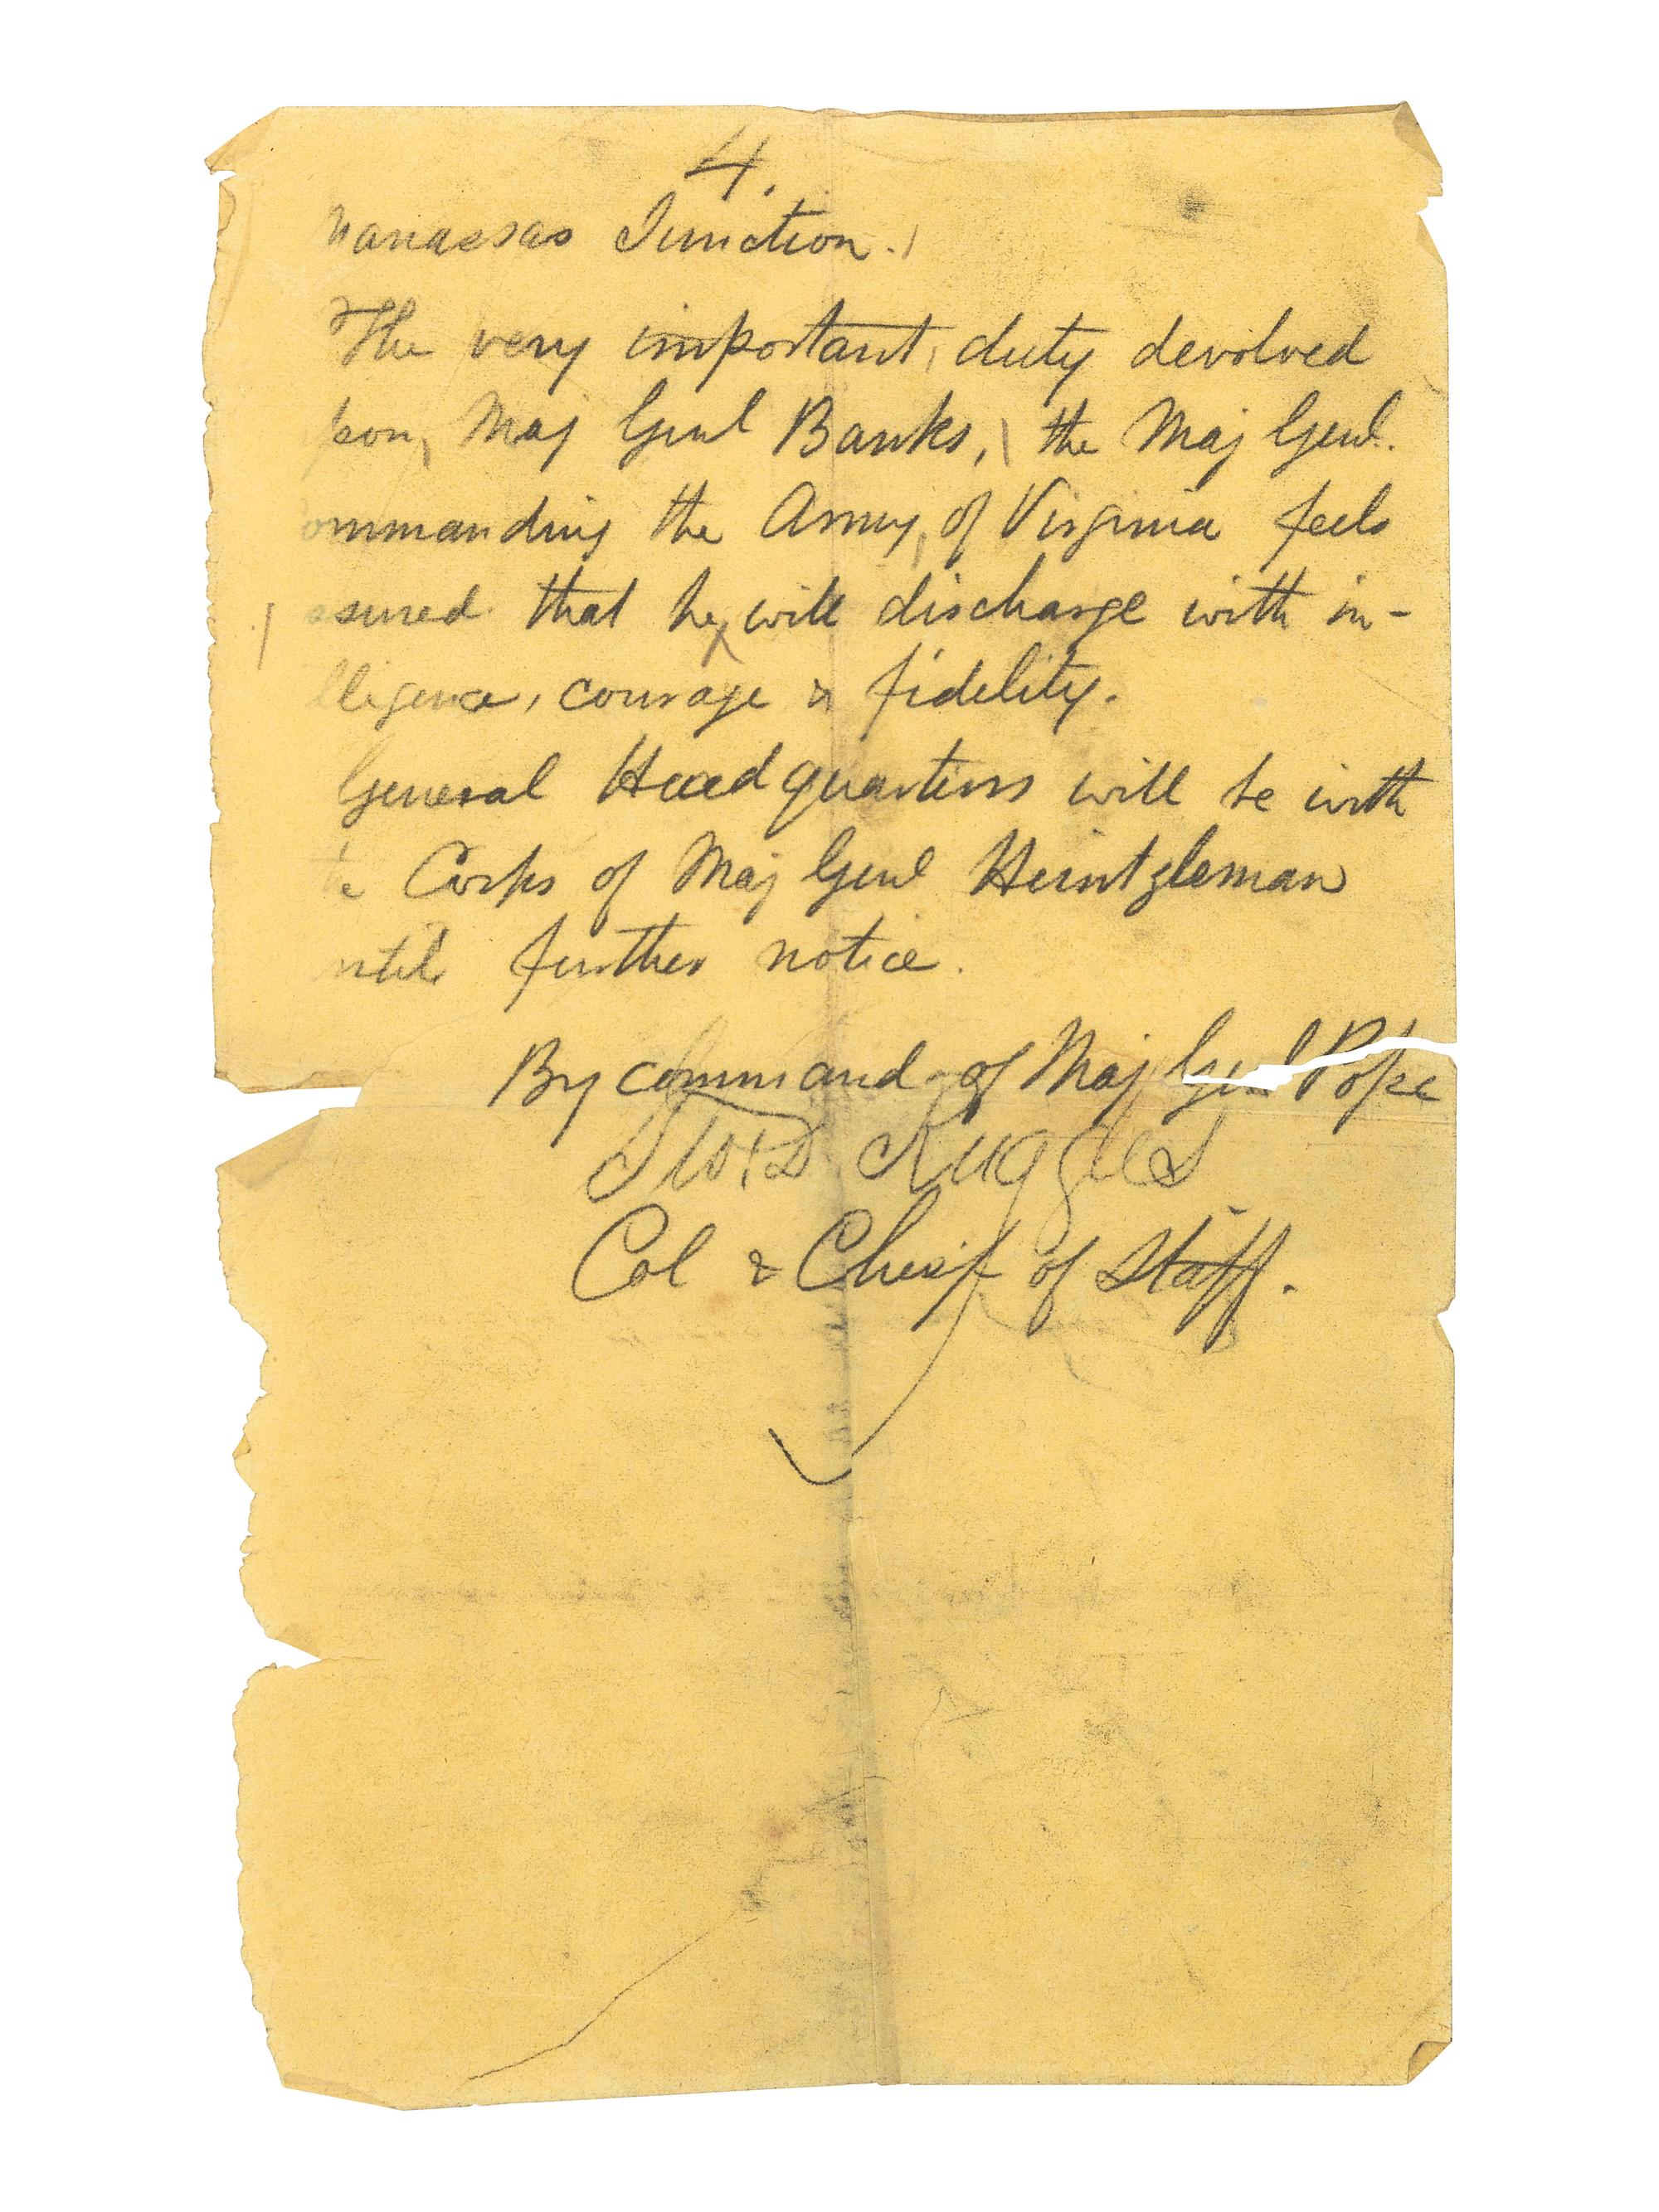 4.
Manassas Junction.
The very important duty devolved
pon, Maj Genl Banks, the Maj Genl.
ommanding the Army, of Virginia feels
ssured that he will discharge with in-
lligence, courage & fidelity.
General Headquarters will be with
the Corps of Maj Genl Heintzleman
ntil further notice.
By command of Maj Genl Pope
Ruggles
Col & Chief of Staff.